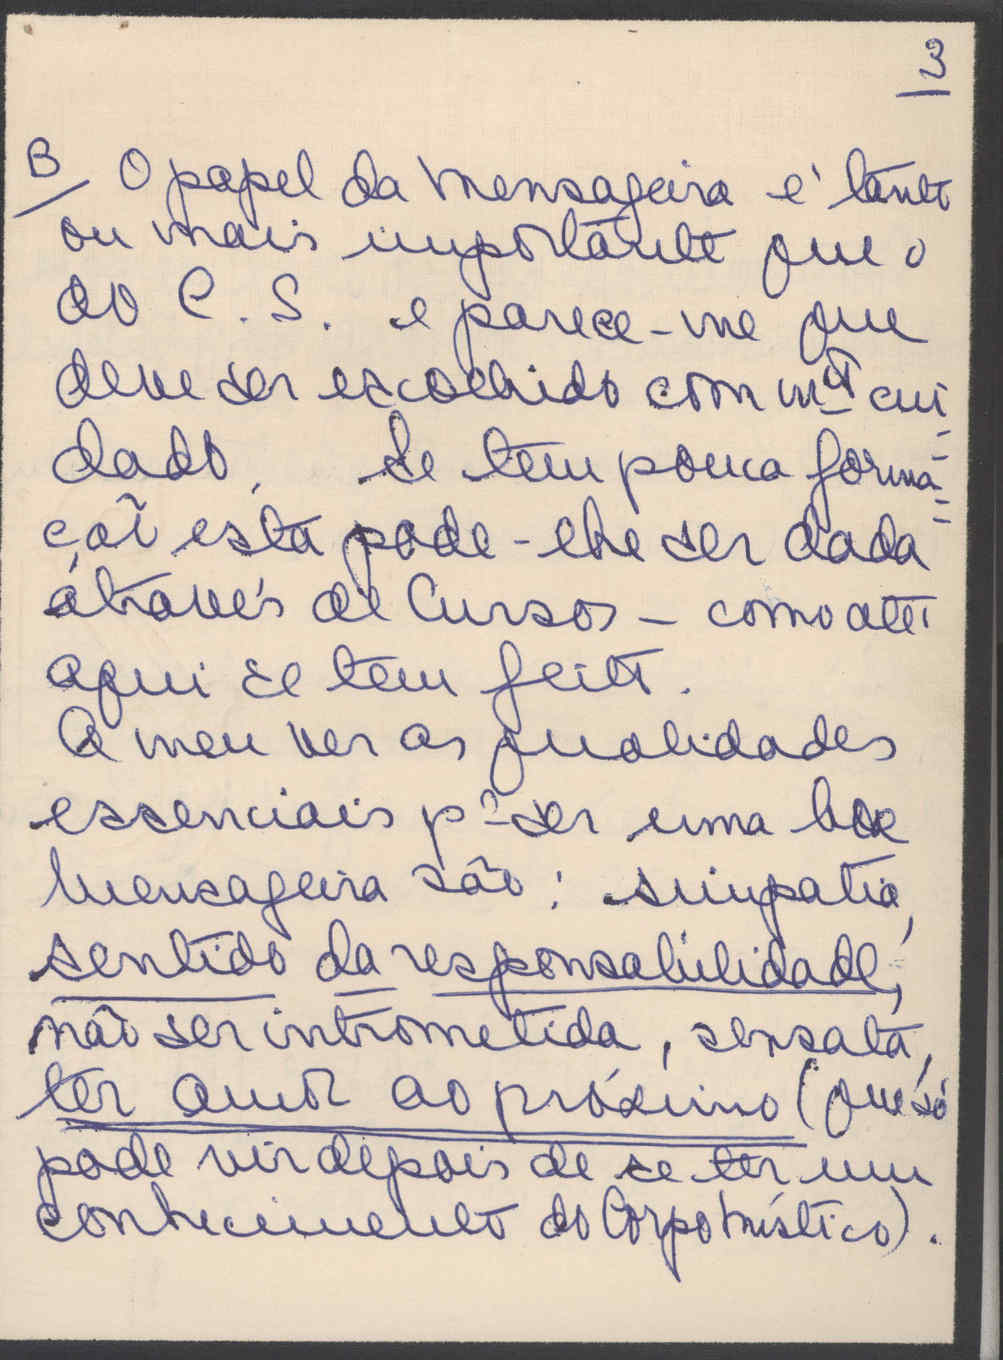 3
B/ O papel da mensageira é tanto
ou mais importante que o
do C. S. e parece-me que
deve ser escolhido com mto cui-
dado. Se tem pouca forma-
ção esta pode-lhe ser dada
através de Cursos - como até
aqui se tem feito.
A meu ver as qualidades
essenciais pª ser uma boa
mensageira são: simpatia,
sentido da responsabilidade,
não ser intrometida, sensata,
ter amor ao próximo (que só
pode vir depois de se ter um
conhecimento do Corpo Místico).